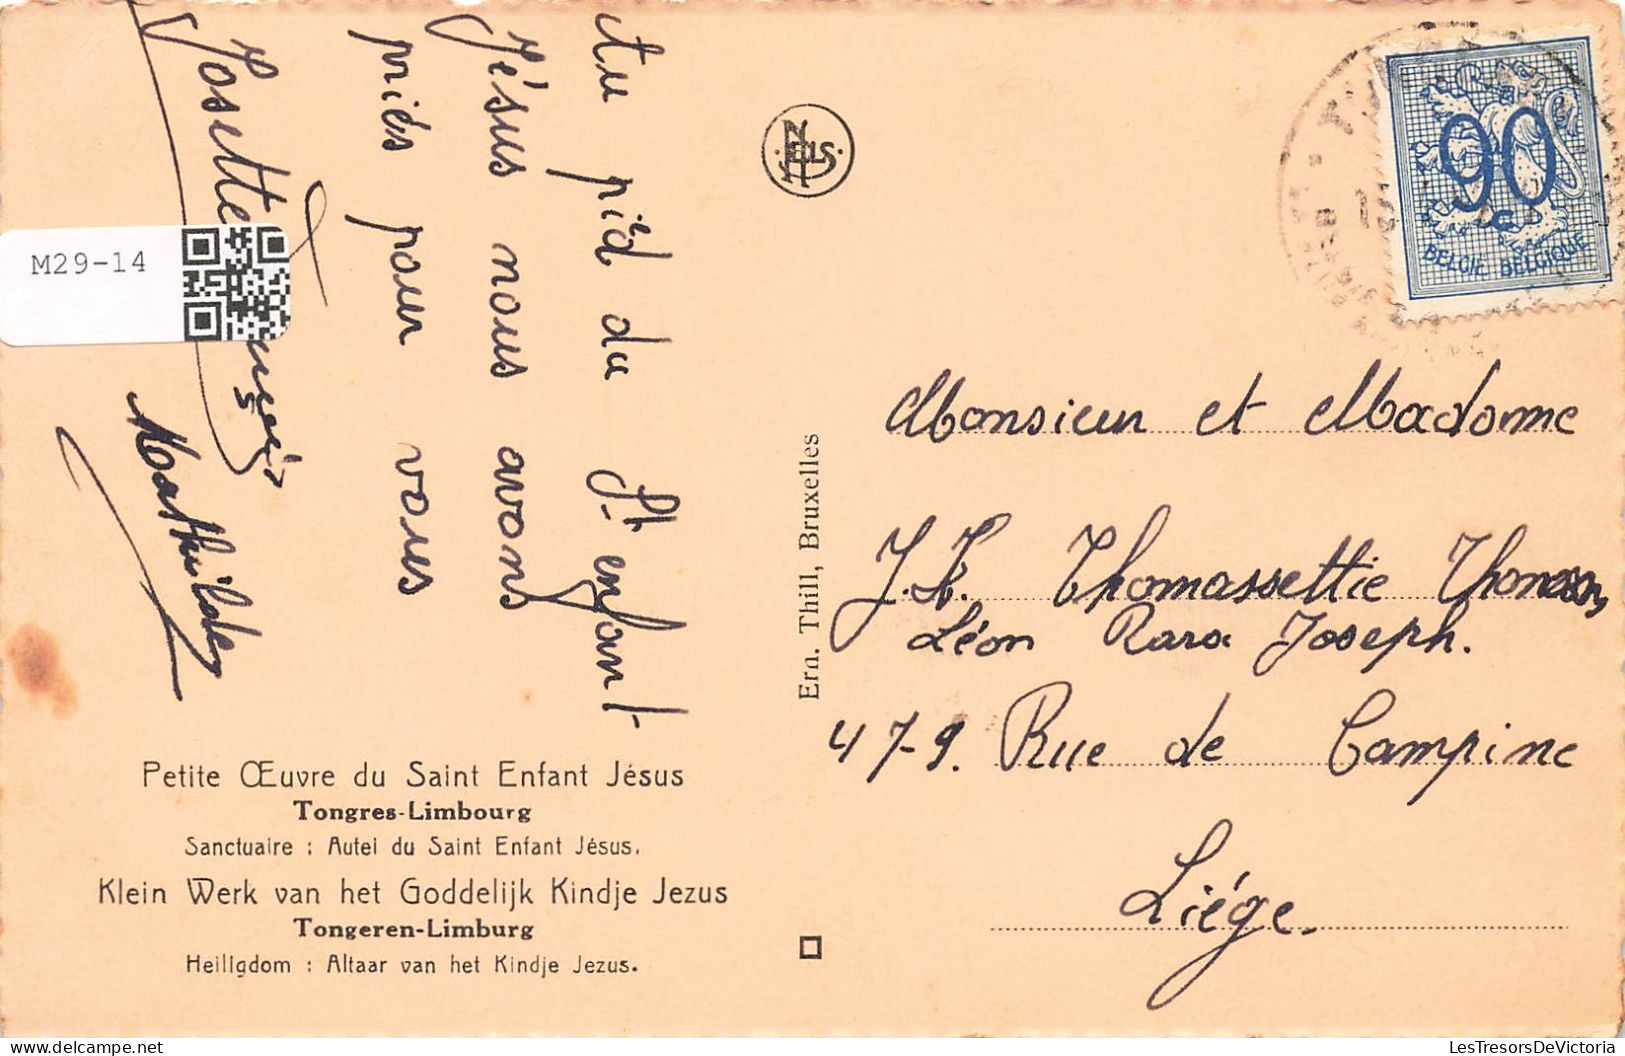 Au pid du St. enfant
Jésus nous avons
priés pour vous
Josette
Mathilde
M29-14
NELS
90
BELGIE BELGIQUE
Ern. Thill, Bruxelles
Monsieur et Madame
J.H. Thomassettie Thomason,
Léon Rara Joseph.
479. Rue de Campine
Liége.
Petite Œuvre du Saint Enfant Jésus
Tongres-Limbourg
Sanctuaire : Autel du Saint Enfant Jésus.
Klein Werk van het Goddelijk Kindje Jezus
Tongeren-Limburg
Heiligdom : Altaar van het Kindje Jezus.
LesTresorsDeVictoria